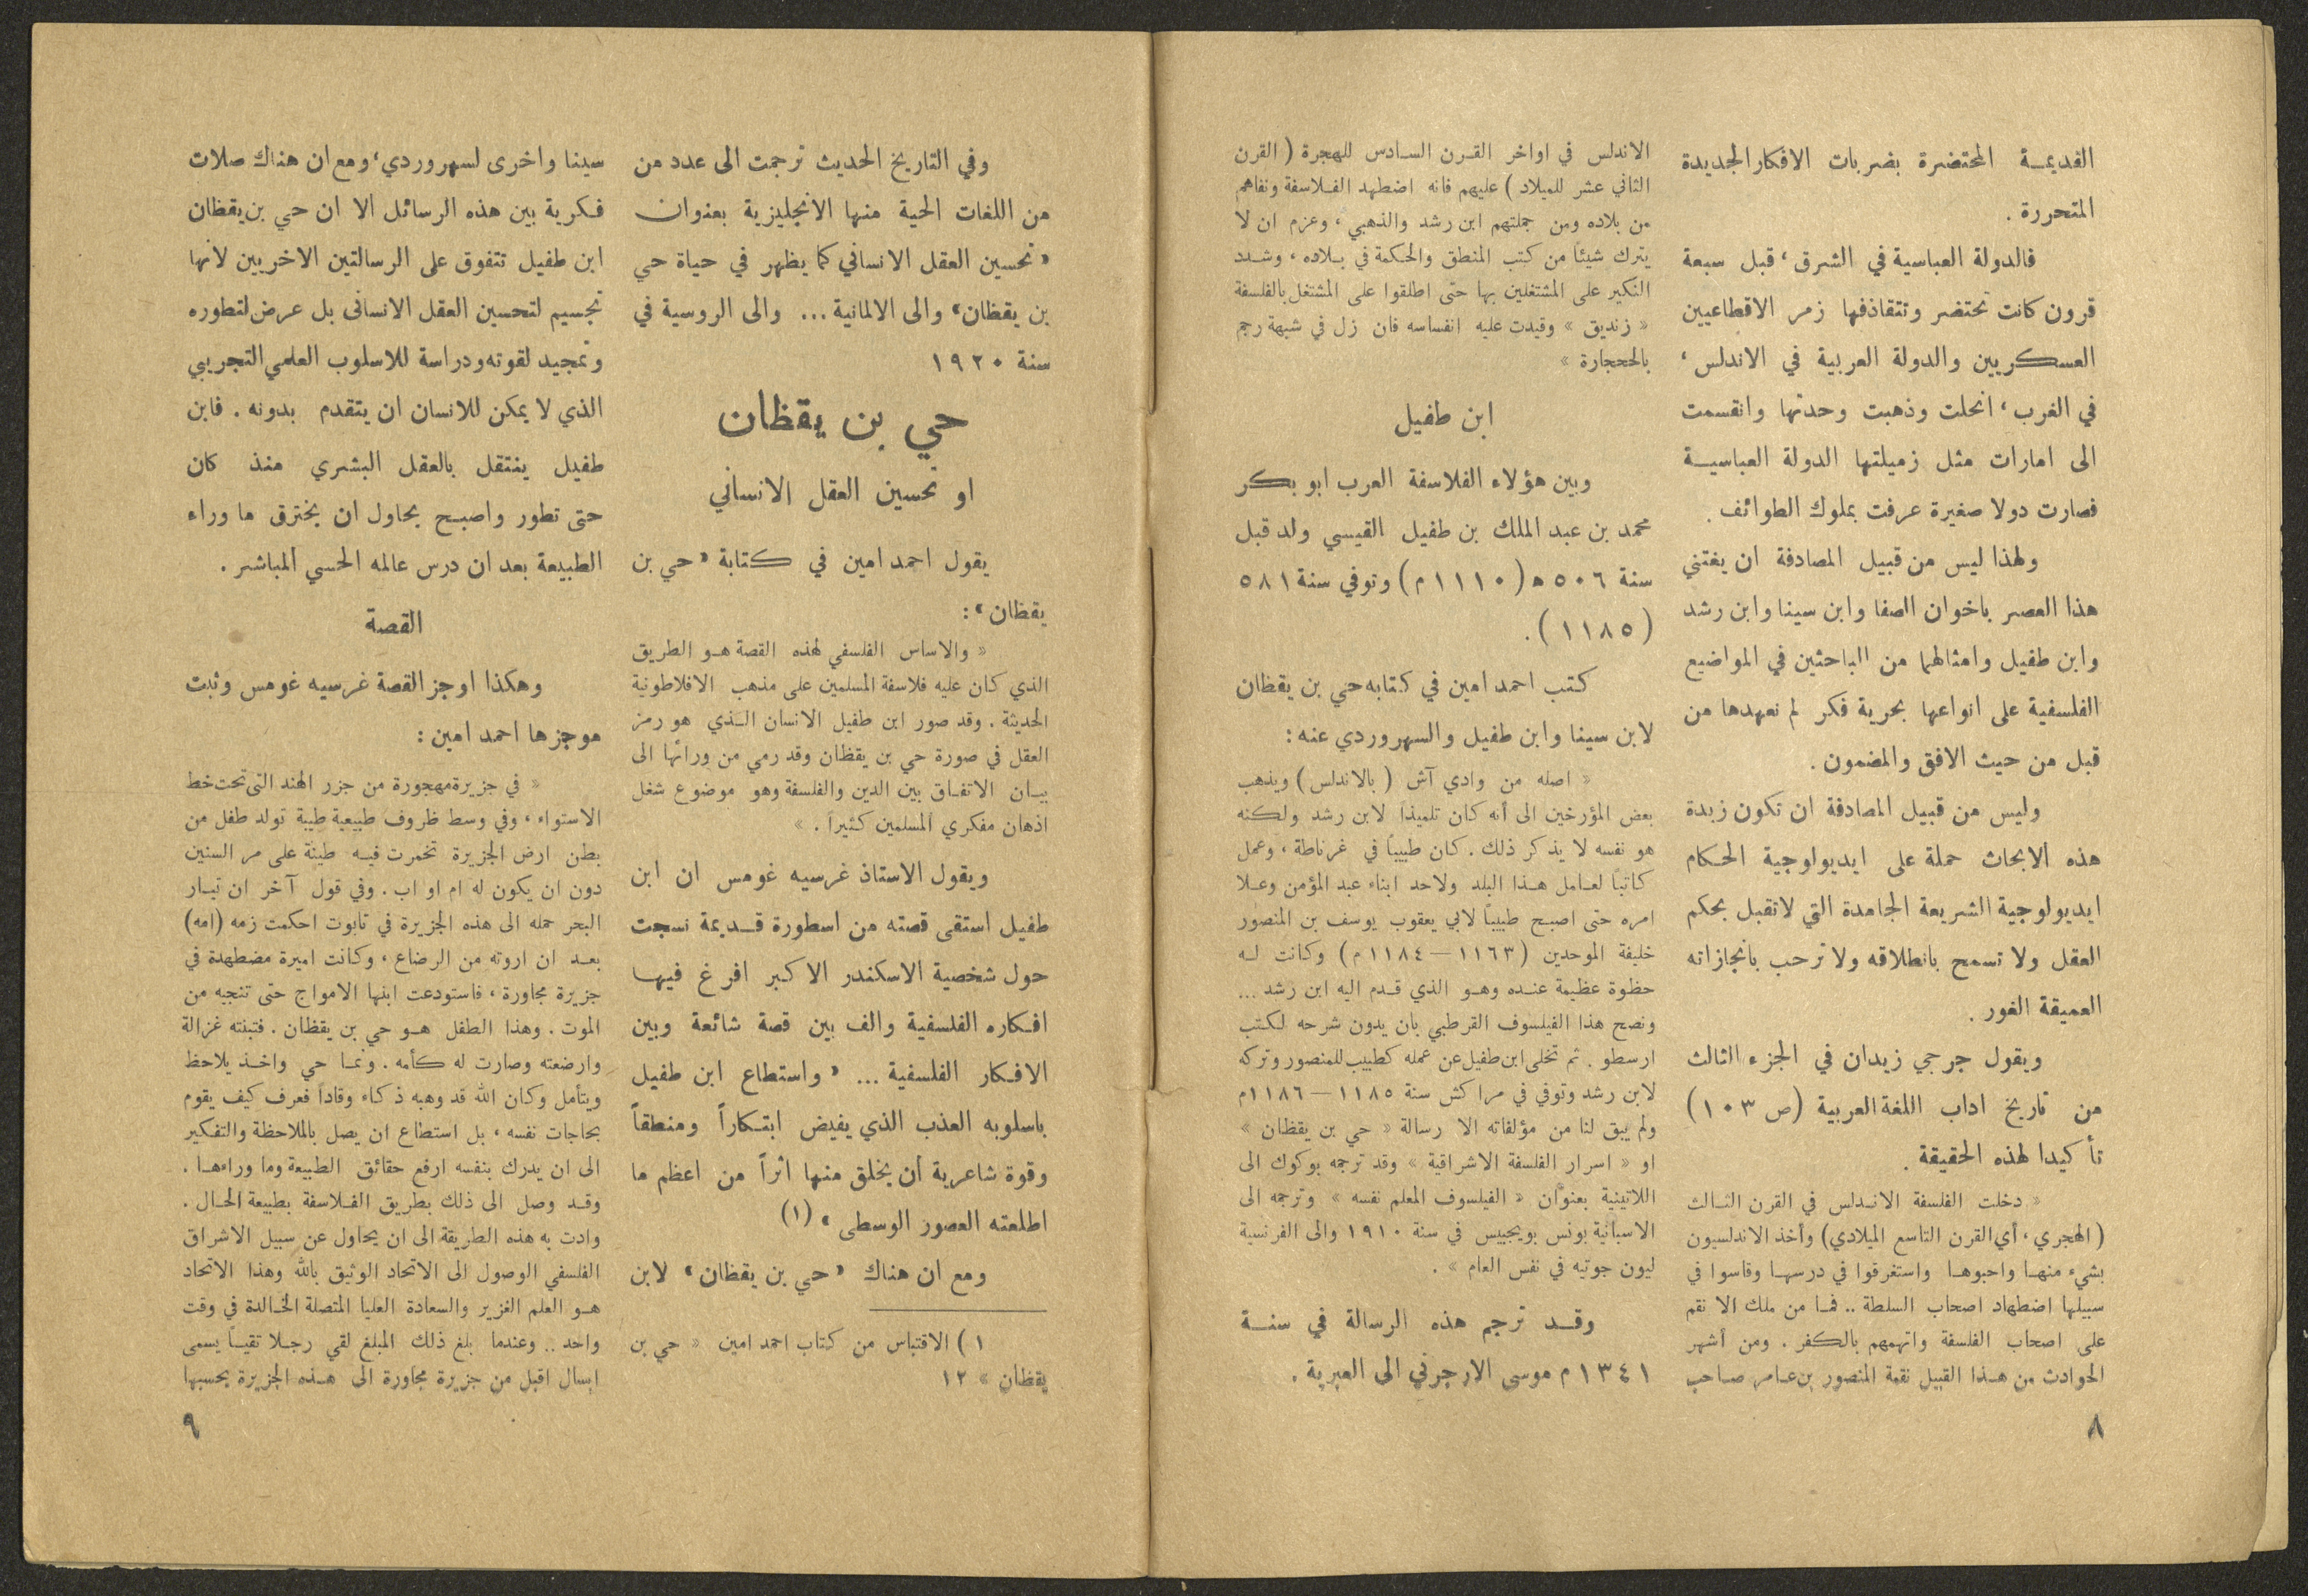 القديمـة المحتضرة بضربات الافكار الجديدة
المتحررة .
فالدولة العباسية في الشرق ، قبل سبعة
قرون كانت تحتضر وتتقاذفها زمر الاقطاعيين
العسكريين والدولة العربية في الاندلس ،
في الغرب ، انحلت وذهبت وحدتها وانقسمت
الى امارات مثل زميلتها الدولة العباسيـة
فصارت دولا صغيرة عرفت بملوك الطوائف .
ولهذا ليس من قبيل المصادفة ان يغتني
هذا العصر باخوان الصفا وابن سينا وابن رشد
وابن طفيل وامثالهما من الباحثين في المواضيع
الفلسفية على انواعها بحرية فكر لم نعهدها من
قبل من حيث الافق والمضمون .
وليس من قبيل المصادفة ان تكون زبدة
هذه الابحاث حملة على ايديولوجية الحكام
ايديولوجية الشريعة الجامدة التي لاتقبل بحكم
العقل ولا تسمح بانطلاقه ولا ترحب بانجازاته
العميقة الغور .
ويقول جرجي زيدان في الجزء الثالث
من تاريخ اداب اللغة العربية (ص ١٠٣)
تأكيدا لهذه الحقيقة .
« دخلت الفلسفة الانـدلس في القرن الثـالث
(الهجري ، أي القرن التاسع الميلادي) وأخذ الاندلسيون
بشيء منهـا واحبوهـا واستغرقوا في درسهـا وقاسوا في
سبيلها اضطهاد اصحاب السلطة .. فمـا من ملك الا نقم
على اصحاب الفلسفة واتهمهم بالكفر . ومن أشهر
الحوادث من هـذا القبيل نقمة المنصور بن عـامر صـاحب
٨
الاندلس في اواخر القـرن السـادس للهجرة ( القرن
الثاني عشر للميلاد ) عليهم فانه اضطهد الفـلاسفة ونفاهم
من بلاده ومن جملتهم ابن رشد والذهبي ، وعزم ان لا
يترك شيئاً من كتب المنطق والحكمة في بـلاده ، وشـدد
النكير على المشتغلين بها حتى اطلقوا على المشتغل بالفلسفة
« زنديق » وقيدت عليه انفساسه فان زل في شبهة رجم
بالححجارة »
ابن طفيل
وبين هؤلاء الفلاسفة العرب ابو بكر
محمد بن عبد الملك بن طفيل القيسي ولد قبل
سنة ٥٠٦ ه (١١١٠ م) وتوفي سنة ٥٨١
(١١٨٥) .
كتب احمد امين في كتابه حي بن يقظان
لابن سينا وابن طفيل والسهروردي عنه :
« اصله من وادي آش ( بالاندلس ) ويذهب
بعض المؤرخين الى أنه كان تلميذاً لابن رشد ولكنه
هو نفسه لا يذكر ذلك . كان طبيباً في غرناطة ، وعمل
كاتبًا لعـامل هـذا البلد ولاحد ابناء عبد المؤمن وعـلا
امره حتى اصبح طبيباً لابي يعقوب يوسف بن المنصور
خليفة الموحدين (١١٦٣ — ١١٨٤ م) وكانت لـه
حظوة عظيمة عنـده وهـو الذي قـدم اليه ابن رشد ...
ونصح هذا الفيلسوف القرطبي بان يدون شرحه لكتب
ارسطو . ثم تخلى ابن طفيل عن عمله كطبيب للمنصور وتركه
لابن رشد وتوفي في مراكش سنة ١١٨٥ — ١١٨٦م
ولم يبق لنا من مؤلفاته الا رسالة « حي بن يقظان »
او « اسرار الفلسفة الاشراقية » وقد ترجمه بوكوك الى
اللاتينية بعنوان « الفيلسوف المعلم نفسه » وترجمه الى
الاسبانية بونس بويجبيس في سنة ١٩١٠ والى الفرنسية
ليون جوتيه في نفس العام » .
وقـد ترجم هذه الرسالة في سنـة
١٣٤١ م موسى الارجرفي الى العبرية .
وفي التاريخ الحديث ترجمت الى عدد من
من اللغات الحية منها الانجليزية بعنوان
« تحسين العقل الانساني كما يظهر في حياة حي
بن يقظان » والى الالمانية ... والى الروسية في
سنة ١٩٢٠
حي بن يقظان
او تحسين العقل الانساني
يقول احمد امين في كتابة « حي بن
يقظان » :
« والاساس الفلسفي لهذه القصة هـو الطريق
الذي كان عليه فلاسفة المسلمين على مذهب الافلاطونية
الحديثة . وقد صور ابن طفيل الانسان الـذي هو رمز
العقل في صورة حي بن يقظان وقد رمي من ورائها الى
بيـان الاتفـاق بين الدين والفلسفة وهو موضوع شغل
اذهان مفكري المسلمين كثيراً . »
ويقول الاستاذ غرسيه غومس ان ابن
طفيل استقى قصته من اسطورة قـديمة نسجت
حول شخصية الاسكندر الاكبر افرغ فيهـا
افكاره الفلسفية والف بين قصة شائعة وبين
الافكار الفلسفية ... « واستطاع ابن طفيل
باسلوبه العذب الذي يفيض ابتكاراً ومنطقاً
وقوة شاعرية أن يخلق منها اثراً من اعظم ما
اطلعته العصور الوسطى » (١)
ومع ان هناك « حي بن يقظان » لابن
١ ) الاقتباس من كتاب احمد امين « حي بن
يقظان » ١٢
سينا واخرى لسهروردي ، ومع ان هناك صلات
فكرية بين هذه الرسائل الا ان حي بن يقظان
ابن طفيل تتفوق على الرسالتين الاخريين لانها
تجسيم لتحسين العقل الانسانى بل عرض لتطوره
وتمجيد لقوته ودراسة للاسلوب العلمي التجريبي
الذي لا يمكن للانسان ان يتقدم بدونه . فابن
طفيل ينتقل بالعقل البشري منذ كان
حتى تطور واصبـح يحاول ان يخترق ما وراء
الطبيعة بعد ان درس عالمه الحسي المباشر .
القصة
وهكذا اوجز القصة غرسيه غومس وثبت
موجزها احمد امين :
« في جزيرة مهجورة من جزر الهند التى تحت خط
الاستواء ، وفي وسط ظروف طبيعية طيبة تولد طفل من
بطن ارض الجزيرة تخمرت فيـه طينة على مر السنين
دون ان يكون له ام او اب . وفي قول آخر ان تيـار
البحر حمله الى هذه الجزيرة في تابوت احكمت زمه (امه)
بعـد ان اروته من الرضاع ، وكانت اميرة مضطهدة في
جزيرة مجاورة ، فاستودعت ابنها الامواج حتى تنجيه من
الموت . وهذا الطفل هـو حي بن يقظان . فتبنته غزالة
وارضعته وصارت له كأمه . ونمـا حي واخـذ يلاحظ
ويتأمل وكان الله قد وهبه ذكاء وقاداً فعرف كيف يقوم
بحاجات نفسه ، بل استطاع ان يصل بالملاحظة والتفكير
الى ان يدرك بنفسه ارفع حقائق الطبيعة وما وراءهـا .
وقـد وصل الى ذلك بطريق الفـلاسفة بطبيعة الحـال .
وادت به هذه الطريقة الى ان يحاول عن سبيل الاشراق
الفلسفي الوصول الى الاتحاد الوثيق بالله وهذا الاتحاد
هـو العلم الغزير والسعادة العليا المتصلة الخـالدة في وقت
واحد .. وعندما بلغ ذلك المبلغ لقي رجـلا تقيـاً يسمى
ابسال اقبل من جزيرة مجاورة الى هـذه الجزيرة يحسبها
٩